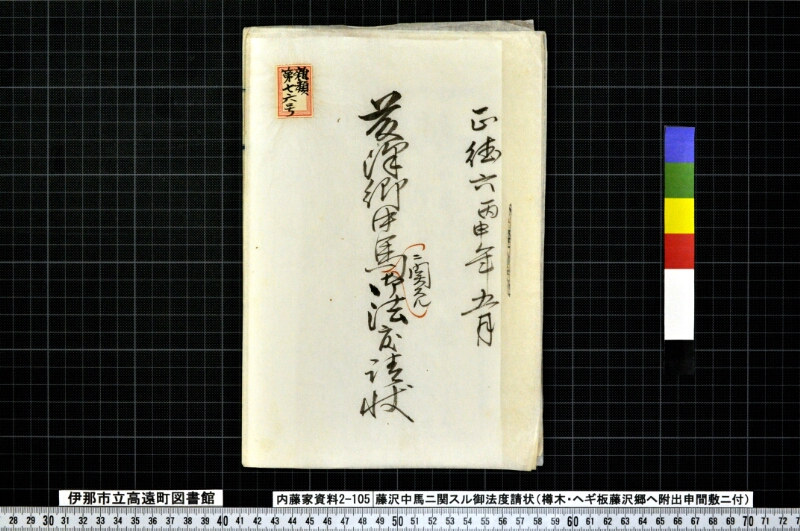 正徳六丙申年 五月
藤澤郷中馬御法度請状
ニ関スル
雑類
第七六号
伊那市立高遠町図書館
内藤家資料2-105
藤沢中馬ニ関スル御法度請状(樽木・ヘギ板藤沢郷へ附出申間敷ニ付)
28 29 30 31 32 33 34 35 36 37 38 39 40 41 42 43 44 45 46 47 48 49 50 51 52 53 54 55 56 57 58 59 60 61 62 63 64 65 66 67 68 69 70 71 72